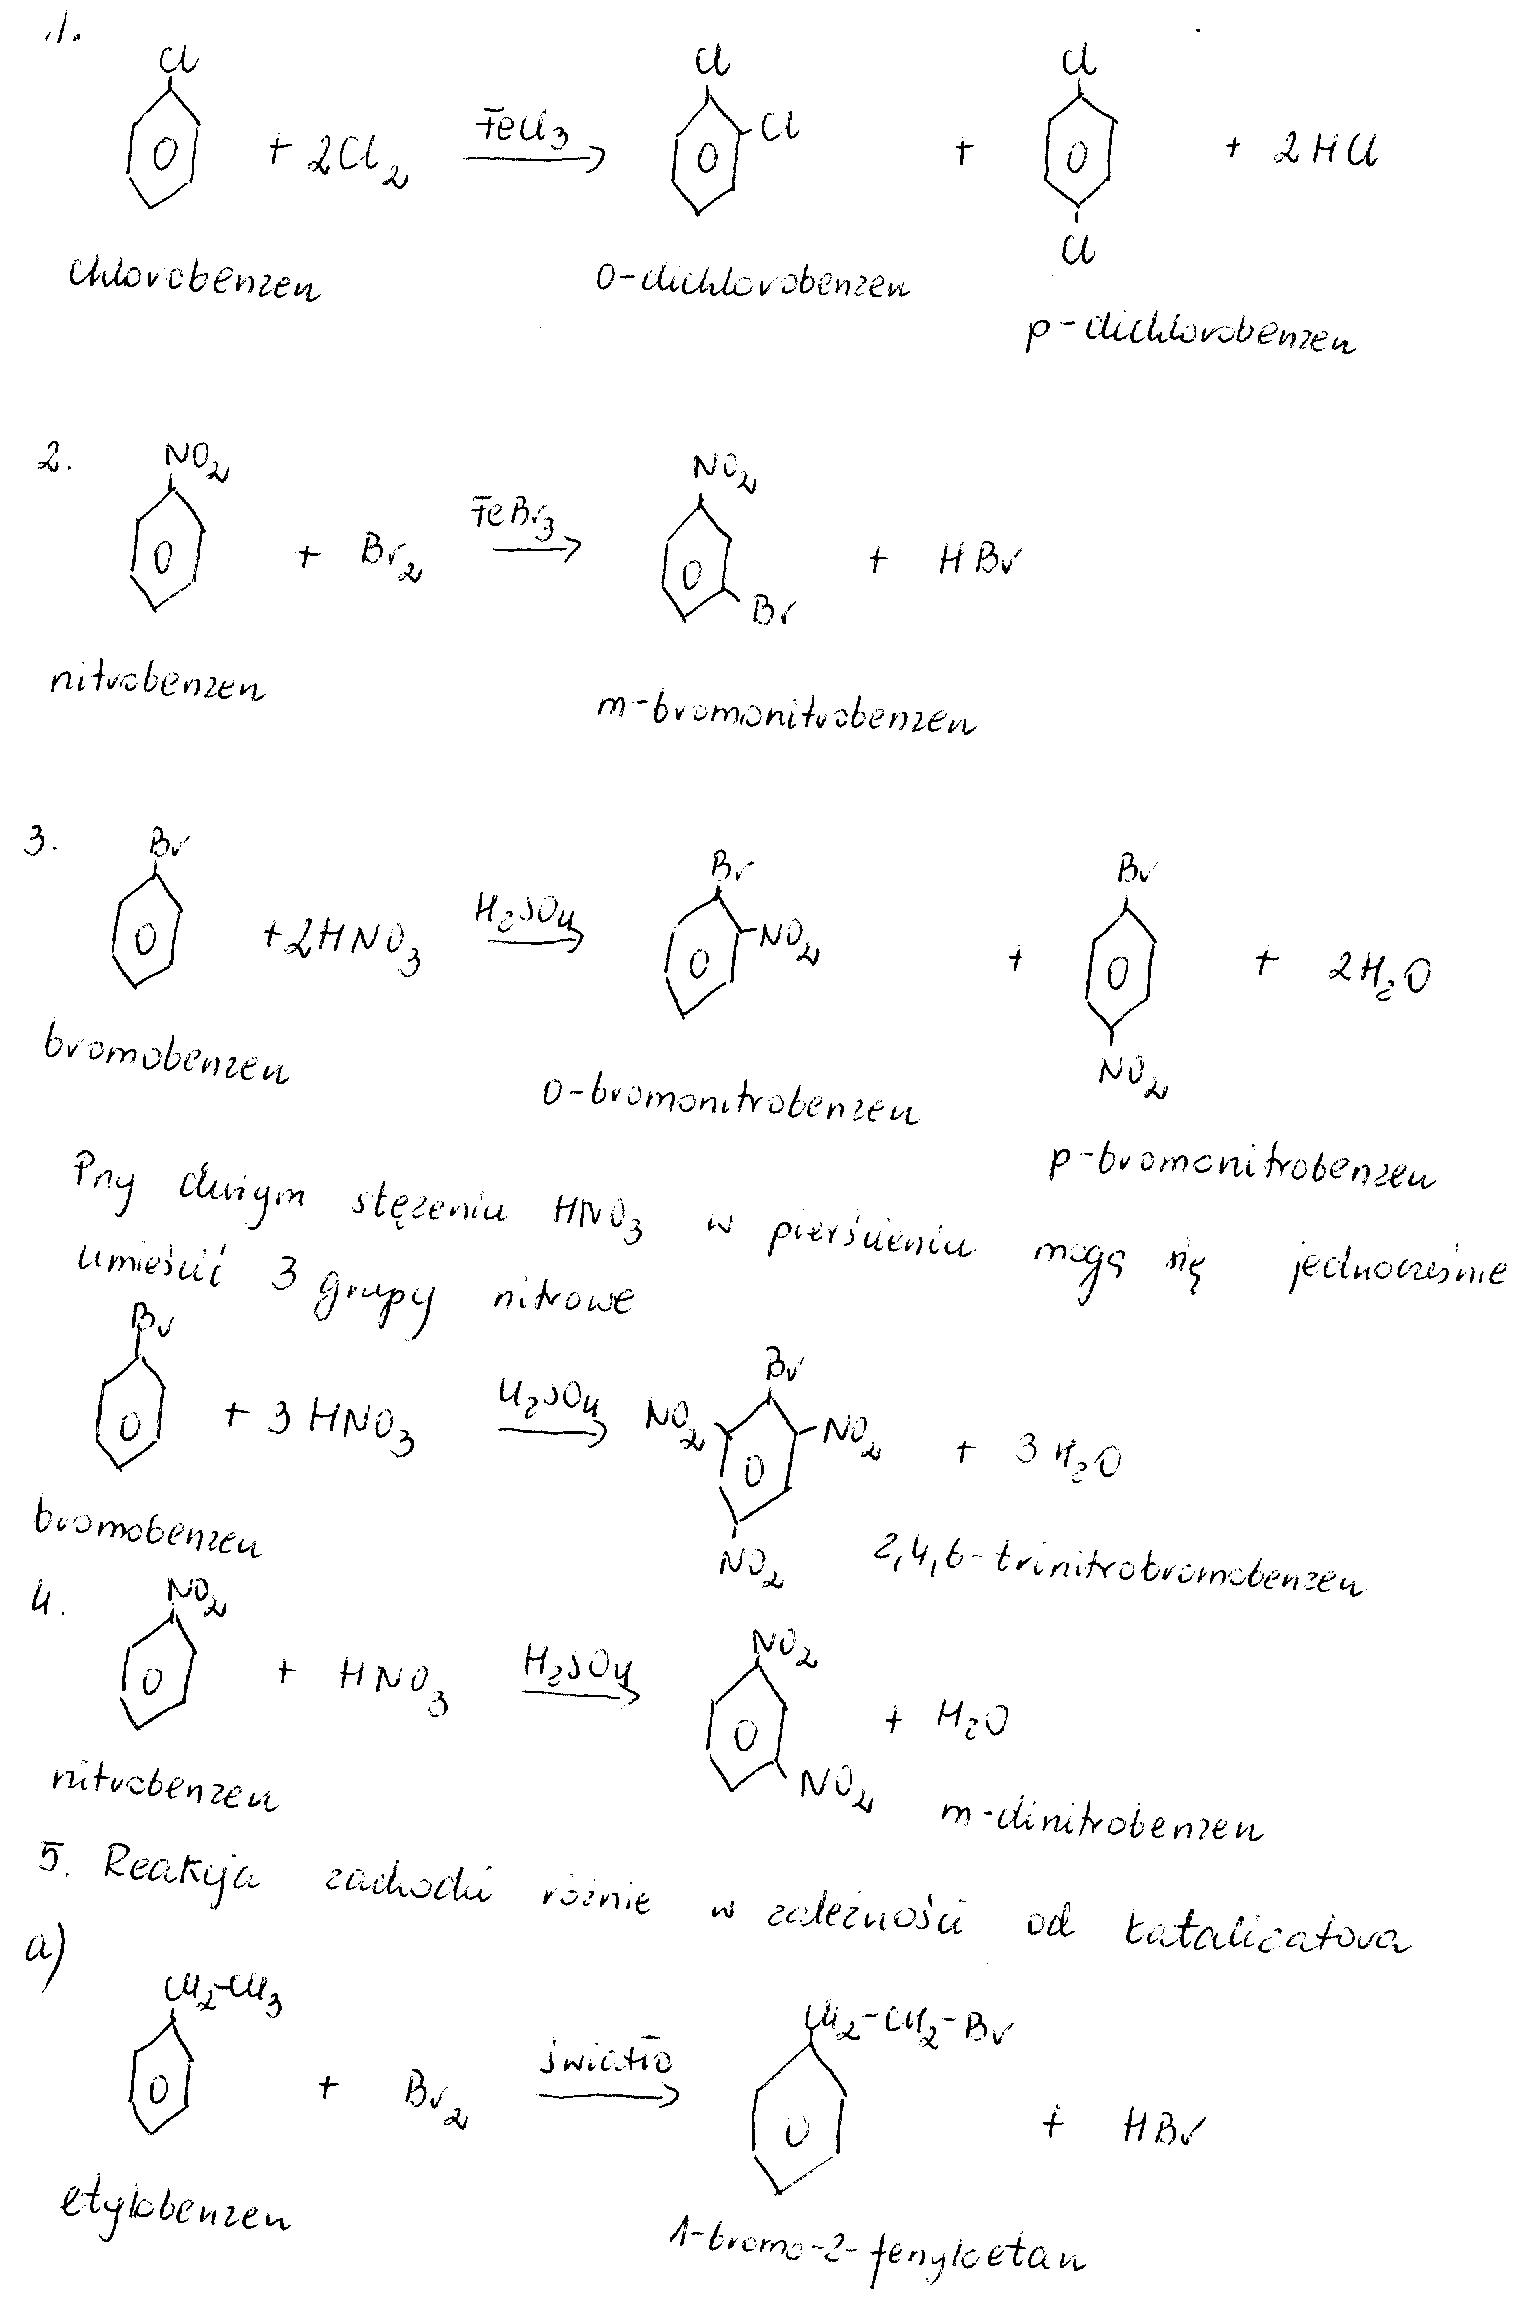 1.
Cl Cl Cl
+ 2Cl2 FeCl3 Cl + + 2HCl
Cl
chlorobenzen o-dichlorobenzen
p-dichlorobenzen
2. NO2 NO2
+ Br2 FeBr3 + HBr
Br
nitrobenzen m-bromonitrobenzen
3. Br Br Br
+2HNO3 H2SO4 NO2 + + 2H2O
NO2
bromobenzen o-bromonitrobenzen
p-bromonitrobenzen
Przy dużym stężeniu HNO3 w pierścieniu mogą się jednocześnie
umieścić 3 grupy nitrowe
Br Br
+ 3HNO3 H2SO4 NO2 NO2 + 3H2O
NO2
bromobenzen 2,4,6-trinitrobromobenzen
4. NO2 NO2
+ HNO3 H2SO4 + H2O
NO2
nitrobenzen m-dinitrobenzen
5. Reakcja zachodzi różnie w zależności od katalizatora
a)
CH2-CH3 CH2-CH2-Br
+ Br2 światło + HBr
etylobenzen 1-bromo-2-fenyloetan